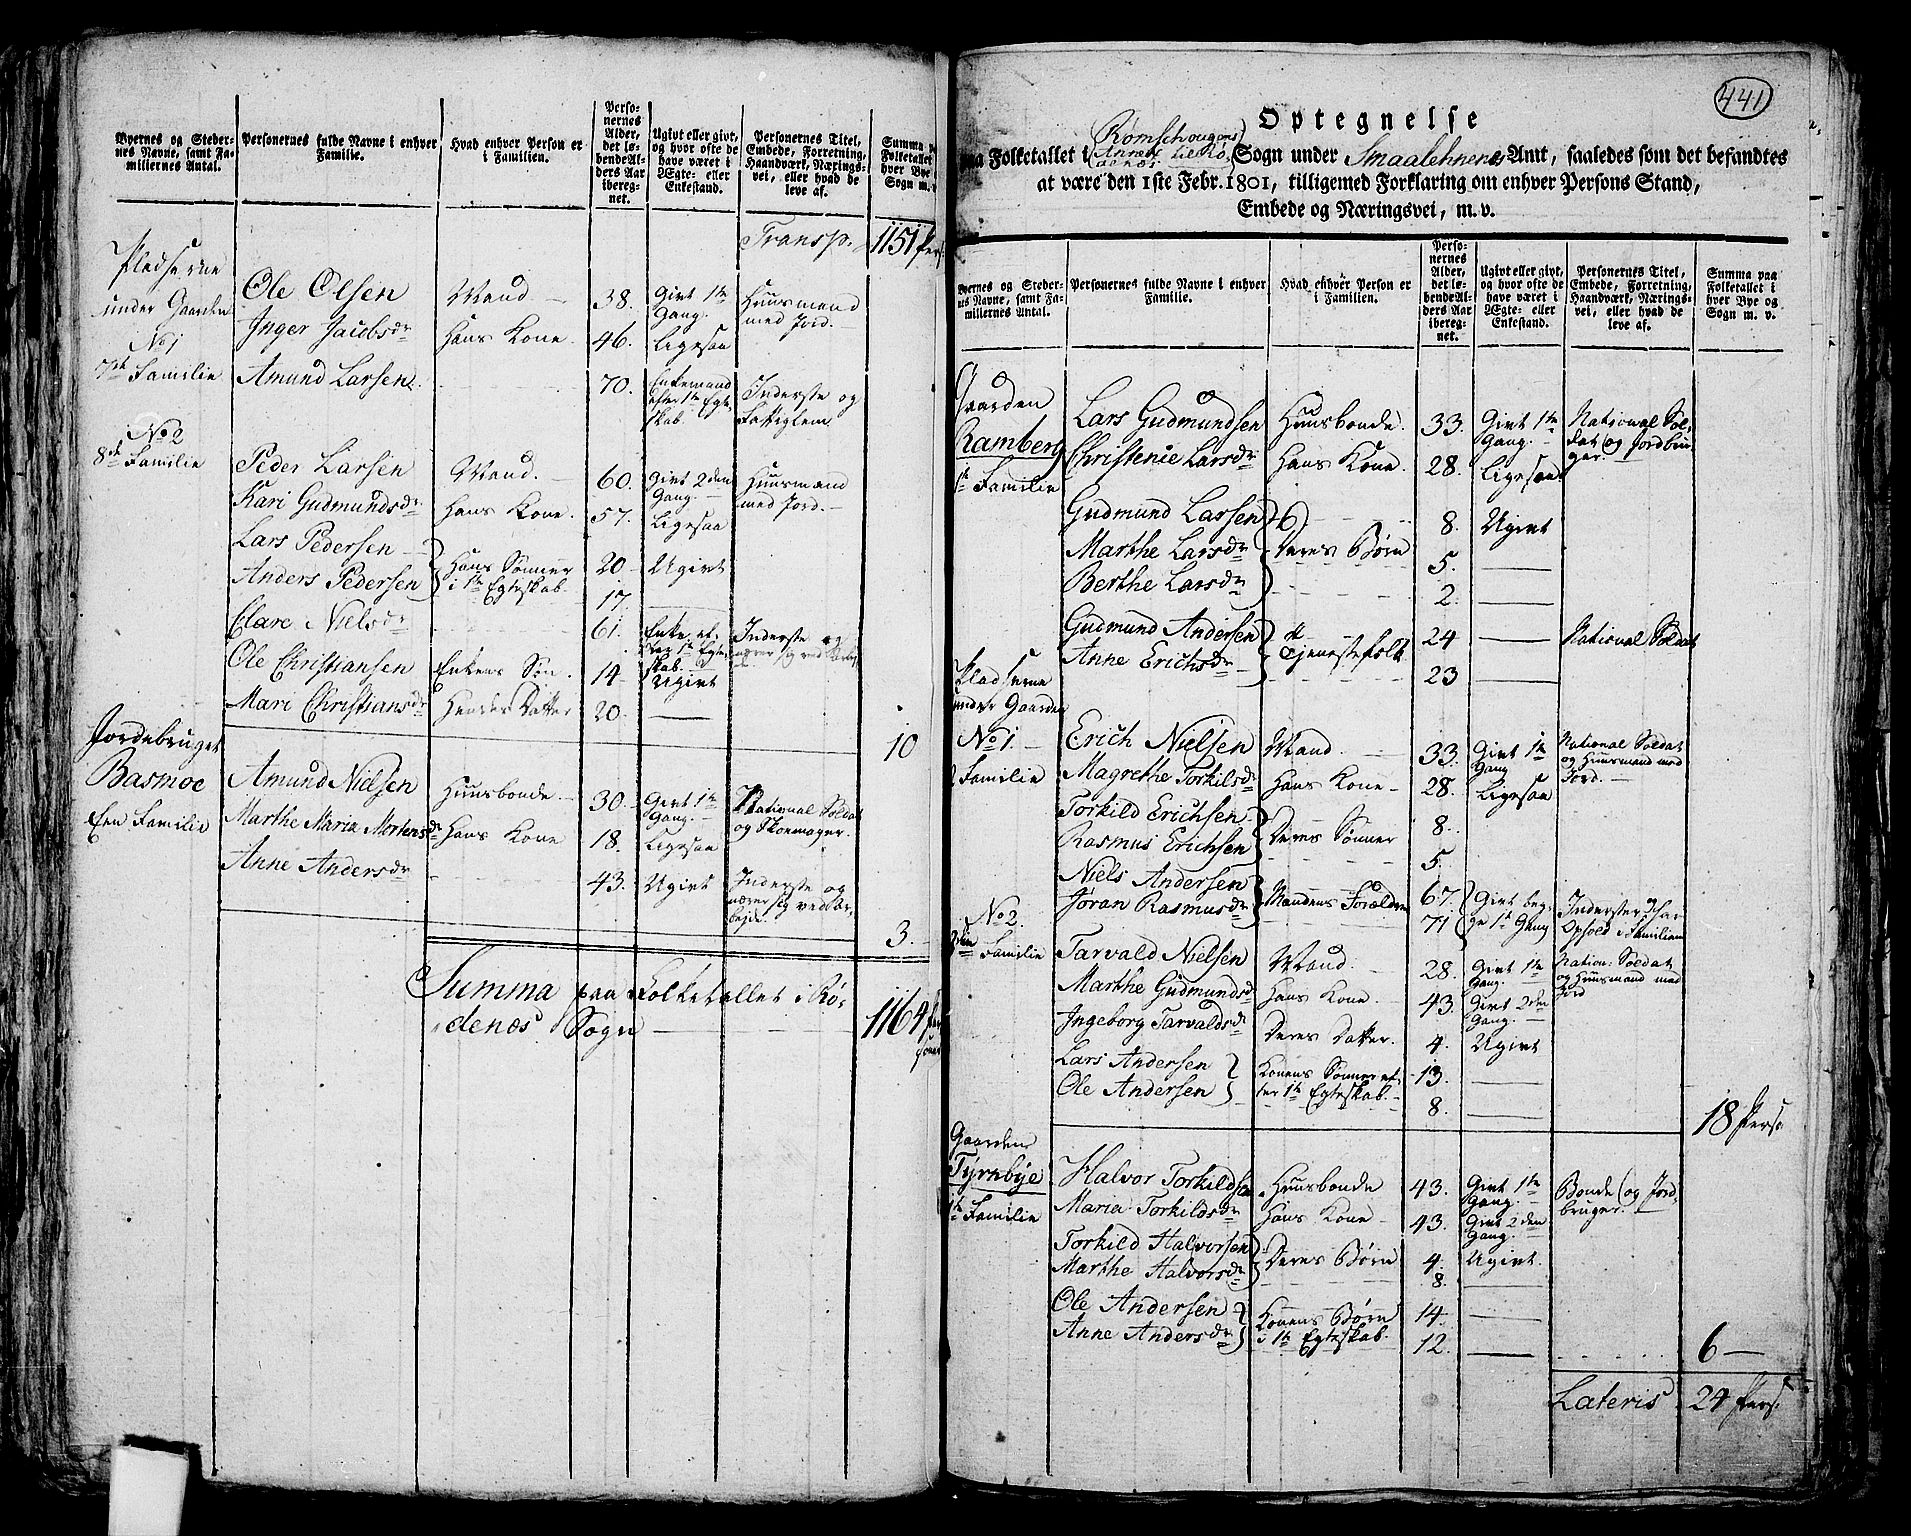 Byernes og Steder- Personernes fulde Navne i enhver Hvad enhver Person er Perso- Ugivt eller givt, Personernes Titel, Summa pa
nes Navne, samt Fa- Familie. i Familien. nernes og hvor ofte de Embede, Forretning, Folketallet
miliernes Antal. Alder, have været i Haandværk, Nærings- hver Bye
det lø- Ægte- eller vei, eller hvad de Sogn m. v
bende Al- Enkestand. leve af.
ders Aar
iberegnet.
Transp. 1151 Pers
Pladserne
under Gaarden
No 1
7de Familie
Ole Olsen Mand 38. Givt 1te Gang. Huusmand med Jord.
Inger Jacobsdr Hans Kone. 46. Ligesaa
Amund Larsen 70. Enkemand efter 1te Egteskab. Inderste og Fattiglem
No 2
8de Familie
Peder Larsen Mand. 60. Givt 2den Gang. Huusmand med Jord.
Kari Gudmundsdr Hans Kone. 57. Ligesaa
Lars Pedersen } Hans Sønner 20 Ugivt
Anders Pedersen } i 1te Egteskab. 17.
Clare Nielsdr 61. Enke efter 1te Egteskab. Inderste og nærer sig ved
Ole Christiansen Enkens Søn. 14 Ugivt
Mari Christiansdr Hendes Datter 20.
10
Jordebruget
Basmoe
Een Familie
Amund Nielsen Huusbonde. 30. Givt 1te Gang. National Soldat og Skoemager.
Marthe Maria Mortensdr Hans Kone 18. Ligesaa
Anne Andersdr 43. Ugivt Inderste og nærer sig ved Arbejde.
3.
Summa paa Folketallet i Rø-
denæs Sogn 1164 Per
soner
441
Optegnelse
paa Folketallet i Rømschougens Annex til Rødenæs Sogn under Smaalehnene Amt, saaledes som det befandtes
at være den 1ste Febr. 1801, tilligemed Forklaring om enhver Persons Stand,
Embede og Næringsvei, m. v.
Byernes og Steder- Personernes fulde Navne i enhver Hvad enhver Person er Perso- Ugivt eller givt, Personernes Titel, Summa paa
nes Navne, samt Fa- Familie. i Familien. nernes og hvor ofte de Embede, Forretning, Folketallet i
miliernes Antal. Alder, have været i Haandværk, Nærings- hver Bye og
det lø- Ægte- eller vei, eller hvad de Sogn m. v.
bende Al- Enkestand. leve af.
ders Aar
iberegnet.
Gaarden
Ramberg
1te Familie
Lars Gudmundsen Huusbonde. 33. Givt 1te Gang. National Soldat og Jordbruger.
Christenie Larsdr Hans Kone. 28. Ligesaa
Gudmund Larsen 8. Ugivt
Marthe Larsdr } Deres Børn 5.
Berthe Larsdr 2.
Gudmund Andersen } 24 National Soldat
Anne Erichsdr } Tjenestefolk 23
Pladserne
under Gaarden
No 1.
Familie
Erich Nielsen Mand. 33. Givt 1te Gang National Soldat og Huusmand med Jord.
Magrethe Torkilsdr Hans Kone 28. Ligesaa
Torkild Erichsen } Deres Sønner 8.
Rasmus Erichsen } 5.
Niels Andersen } Mandens Forældre 67. } Givt begge 1te Gang Inderster og har Ophold i Familien
Jøran Rasmusdr } 71
No 2.
Familie
Tarvald Nielsen Mand. 28. Givt 1te Gang. Nation: Soldat og Huusmand med Jord
Marthe Gudmundsdr Hans Kone. 43. Givt 2den Gang.
Ingeborg Tarvaldsdr Deres Datter. 4. Ugivt
Lars Andersen } Konens Sønner ef- 13.
Ole Andersen } ter 1te Egteskab. 8.
18 Pers:
Gaarden
Tyrnbye
1te Familie
Halvor Torkildsen Huusbonde 43. Givt 1te Gang. Bonde og Jordbruger.
Maria Torkildsdr Hans Kone 43. Givt 2den Gang.
Torkild Halvorsen } Deres Børn 4. Ugivt.
Marthe Halvorsdr } 8.
Ole Andersen } Konens Børn 14.
Anne Andersdr } i 1te Egteskab. 12.
6
Lateris 24 Pers.